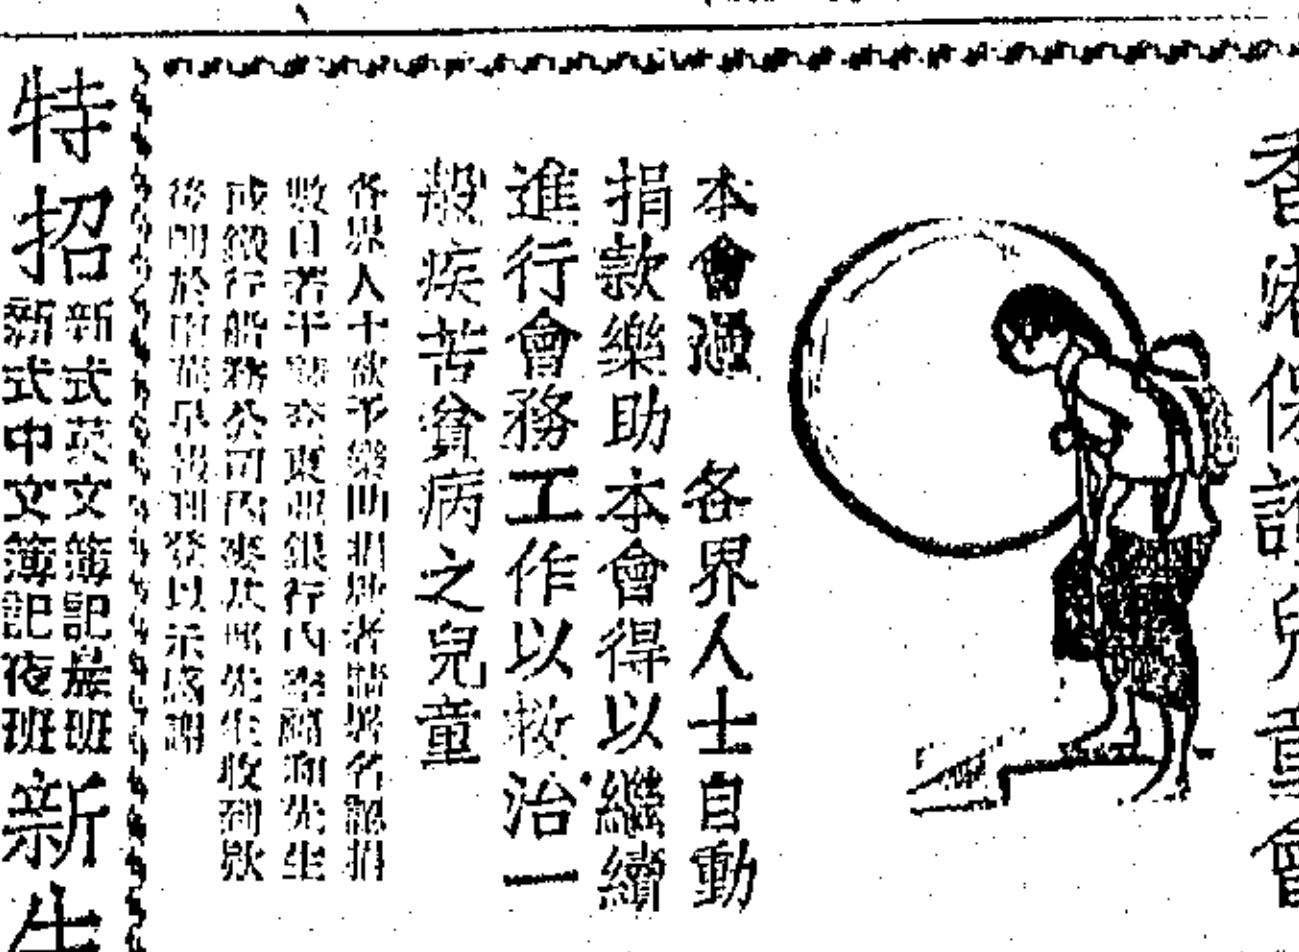 香港保護兒童會
本會通　各界人士自動
捐款樂助本會得以繼續
進行會務工作以救治一
般疾苦貧病之兒童
各界人士欲予樂助捐款者請將名認捐
數目若干寄交東亞銀行內李福和先生
或銀行船務公司內麥先生收到款
後即於南華早報刊登以示感謝
特招
新式英文簿記晨班
新式中文簿記夜班
新生